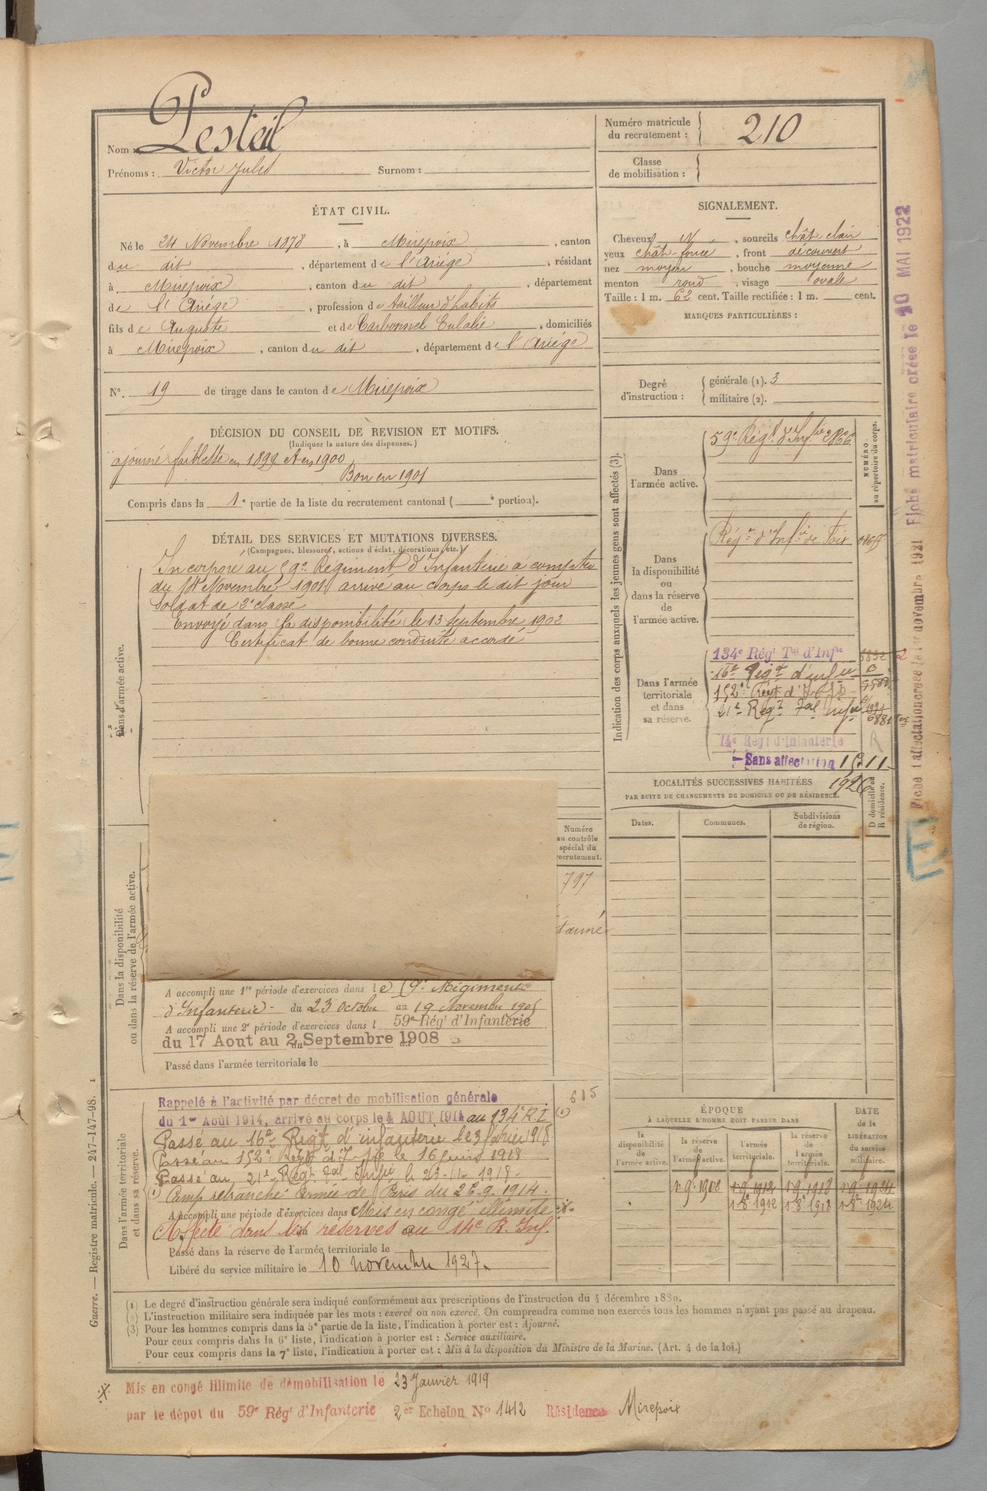 Nom : Pesteil
Prénoms : Victor Jules Surnom :
Numéro matricule du recrutement : 210
Classe de mobilisation :
ÉTAT CIVIL.
Né le 24 Novembre 1878, à Mirepoix, canton
du dit, département de l'Ariège, résidant
à Mirepoix, canton du dit, département
de l'Ariège, profession de tailleur d'habits
fils de Auguste et de Carbonnel Eulalie, domiciliés
à Mirepoix, canton du dit, département de l'Ariège
N°. 19 de tirage dans le canton de Mirepoix
SIGNALEMENT.
Cheveux id, sourcils chât clair
yeux chât foncé, front découvert
nez moyen, bouche moyenne
menton rond, visage ovale
Taille : 1 m. 62 cent. Taille rectifiée : 1 m. cent.
MARQUES PARTICULIÈRES :
Degré d'instruction : générale (1). 3
militaire (2).
DÉCISION DU CONSEIL DE REVISION ET MOTIFS.
(Indiquer la nature des dispenses.)
ajourné faiblesse en 1899 et en 1900
Bon en 1901
Compris dans la 1e partie de la liste du recrutement cantonal ( e portion).
DÉTAIL DES SERVICES ET MUTATIONS DIVERSES.
(Campagnes, blessures, actions d'éclat, décorations, etc.)
Dans l'armée active.
Incorporé au 59e Régiment d'Infanterie à compter
du Novembre 1901 arrivé au corps le dit jour
Soldat de 2e classe
Envoyé dans la disponibilité le 13 septembre 1902
Certificat de bonne conduite accordé
Indication des corps auxquels les jeunes gens sont affectés (3).
NUMÉRO au répertoire du corps.
Dans l'armée active.
59e Régt d'Infie
Dans la disponibilité ou dans la réserve de l'armée active.
Régt d'Infie de Foix
Dans l'armée territoriale et dans sa réserve.
134e Régt Tal d'Infie
16e Régt d'infie
152e Régt d'
21e Régt Tal Infie
14e Régt d'Infanterie
Sans affectation
1926
LOCALITÉS SUCCESSIVES HABITÉES
PAR SUITE DE CHANGEMENTS DE DOMICILE OU DE RÉSIDENCE.
Dates. Communes. Subdivisions de région. D domicile ou R résidence.
Dans la disponibilité ou dans la réserve de l'armée active.
Numéro au contrôle spécial du recrutement.
797
A accompli une 1re période d'exercices dans le 59e Régiment
d'Infanterie du 23 octobre au 19 Novembre 1905
A accompli une 2e période d'exercices dans l 59e Régt d'Infanterie
du 17 Aout au 2 Septembre 1908
Passé dans l'armée territoriale le
Dans l'armée territoriale et dans sa réserve.
Rappelé à l'activité par décret de mobilisation générale
du 1er Août 1914, arrivé au corps le 4 AOUT 1914 au 134e R.I. (1)
615
Passé au 16e Régt d'infanterie le 3 février 1918
Passé au 152e Régt d'Infie le 16 juin 1918
Passé au 21e Régt Tal Infie le 23-11-1918.
(1) Camp retranché Armée de Paris du 26.9.1914.
A accompli une période d'exercices dans Mis en congé illimité
Affecté dans les réserves au 14e R. Inf.
Passé dans la réserve de l'armée territoriale le
Libéré du service militaire le 10 novembre 1927.
ÉPOQUE
À LAQUELLE L'HOMME DOIT PASSER DANS
DATE DE LA LIBÉRATION du service militaire.
la disponibilité de l'armée active. la réserve de l'armée active. l'armée territoriale. la réserve de l'armée territoriale.
1.9.1908 1.9.1912 1.9.1918 1.9.1924
1.8bre 1912 1.8bre 1918 1.8bre 1924
(1) Le degré d'instruction générale sera indiqué conformément aux prescriptions de l'instruction du 4 décembre 1889.
(2) L'instruction militaire sera indiquée par les mots : exercé ou non exercé. On comprendra comme non exercés tous les hommes n'ayant pas passé au drapeau.
(3) Pour les hommes compris dans la 5e partie de la liste, l'indication à porter est : Ajourné.
Pour ceux compris dans la 6e liste, l'indication à porter est : Service auxiliaire.
Pour ceux compris dans la 7e liste, l'indication à porter est : Mis à la disposition du Ministre de la Marine. (Art. 4 de la loi.)
Mis en congé illimité de démobilisation le 23 Janvier 1919
par le dépôt du 59e Régt d'Infanterie 2e Echelon N° 1412 Résidence Mirepoix
Guerre. — Registre matricule. — 247-147-98.
Fiche d'affectation créée le 1er novembre 1921 Fiche matriculaire créée le 10 MAI 1922